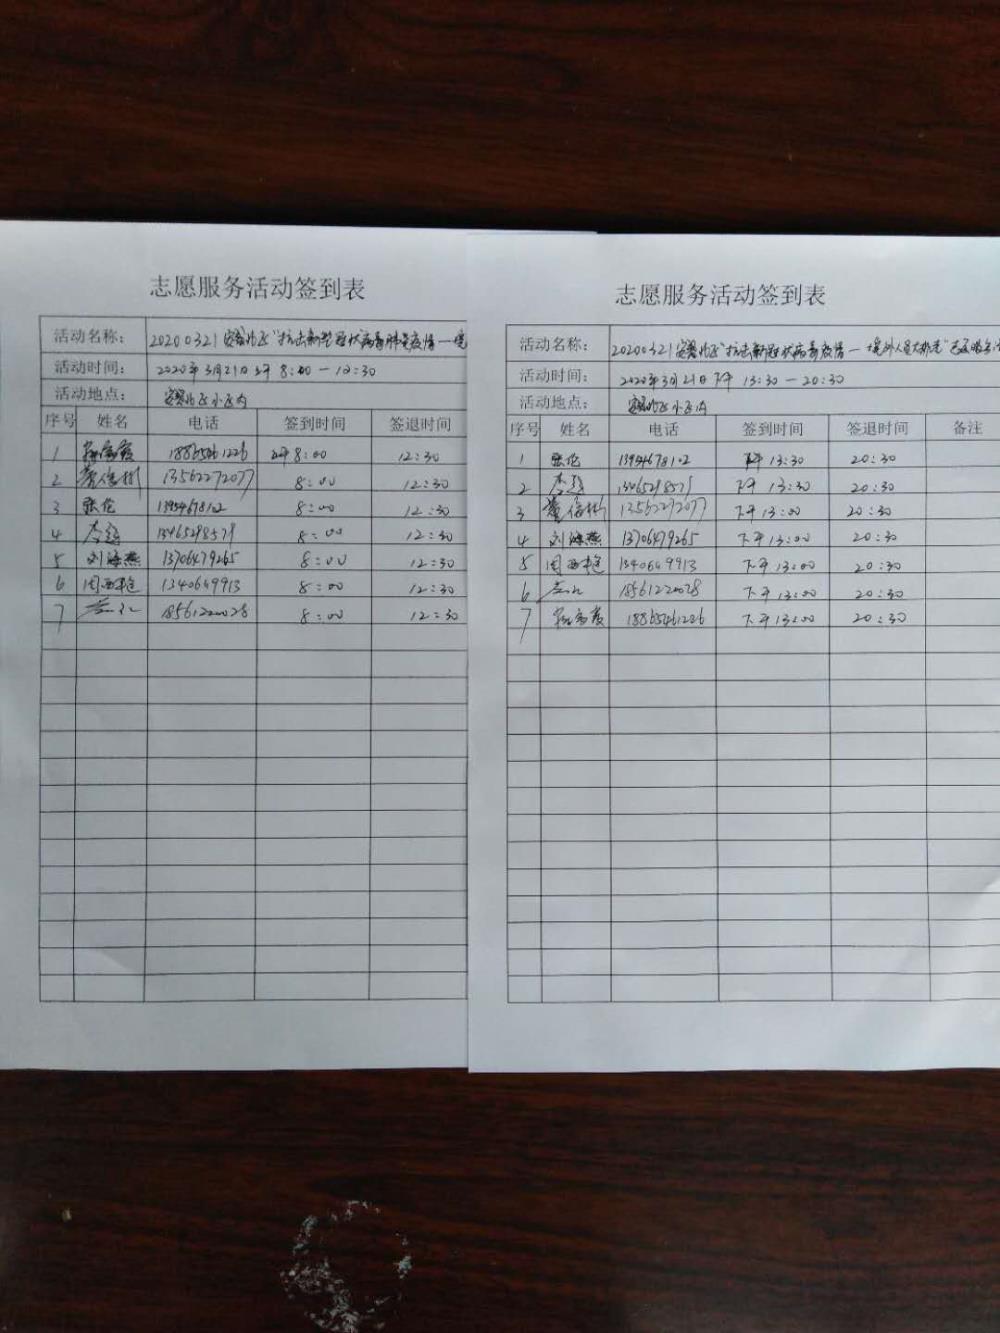 志愿服务活动签到表
活动名称： 20200321 "抗击新型冠状病毒肺炎疫情一境
活动时间： 2020年3月21日上午 8:00 — 12:30
活动地点： 小区内
序号 姓名 电话 签到时间 签退时间
1 18865461226 上午 8:00 12:30
2 董信彬 13562272077 8:00 12:30
3 张伦 13954678102 8:00 12:30
4 李超 13465298579 8:00 12:30
5 刘海燕 13706479265 8:00 12:30
6 周西艳 13406649913 8:00 12:30
7 18561222028 8:00 12:30
志愿服务活动签到表
活动名称： 20200321 "抗击新冠状病毒疫情一境外人员大排查"志愿服务活
活动时间： 2020年3月21日下午 13:30 — 20:30
活动地点： 小区内
序号 姓名 电话 签到时间 签退时间 备注
1 张伦 13954678102 下午 13:30 20:30
2 李超 13465298579 下午 13:30 20:30
3 董信彬 13562272077 下午 13:00 20:30
4 刘海燕 13706479265 下午 13:00 20:30
5 周西艳 13406649913 下午 13:00 20:30
6 18561222028 下午 13:00 20:30
7 18865461226 下午 13:00 20:30